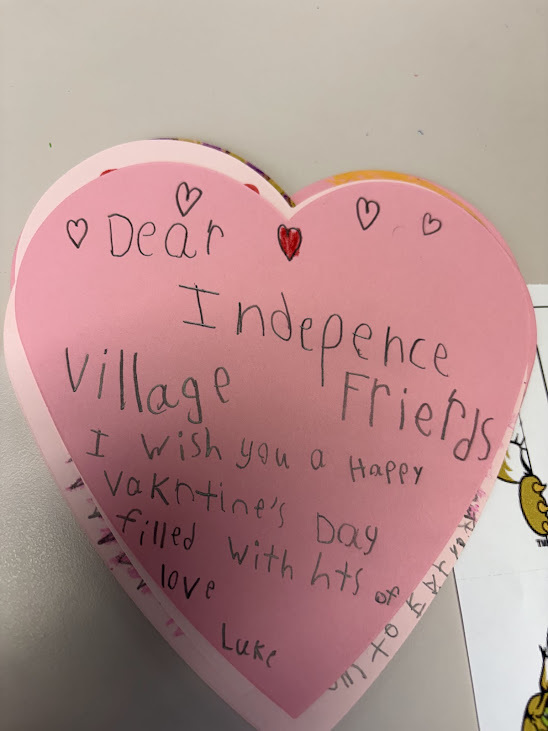 Dear
Indepence
Village Frierds
I wish you a Happy
Vakntine's Day
filled with hts of
love
Luke